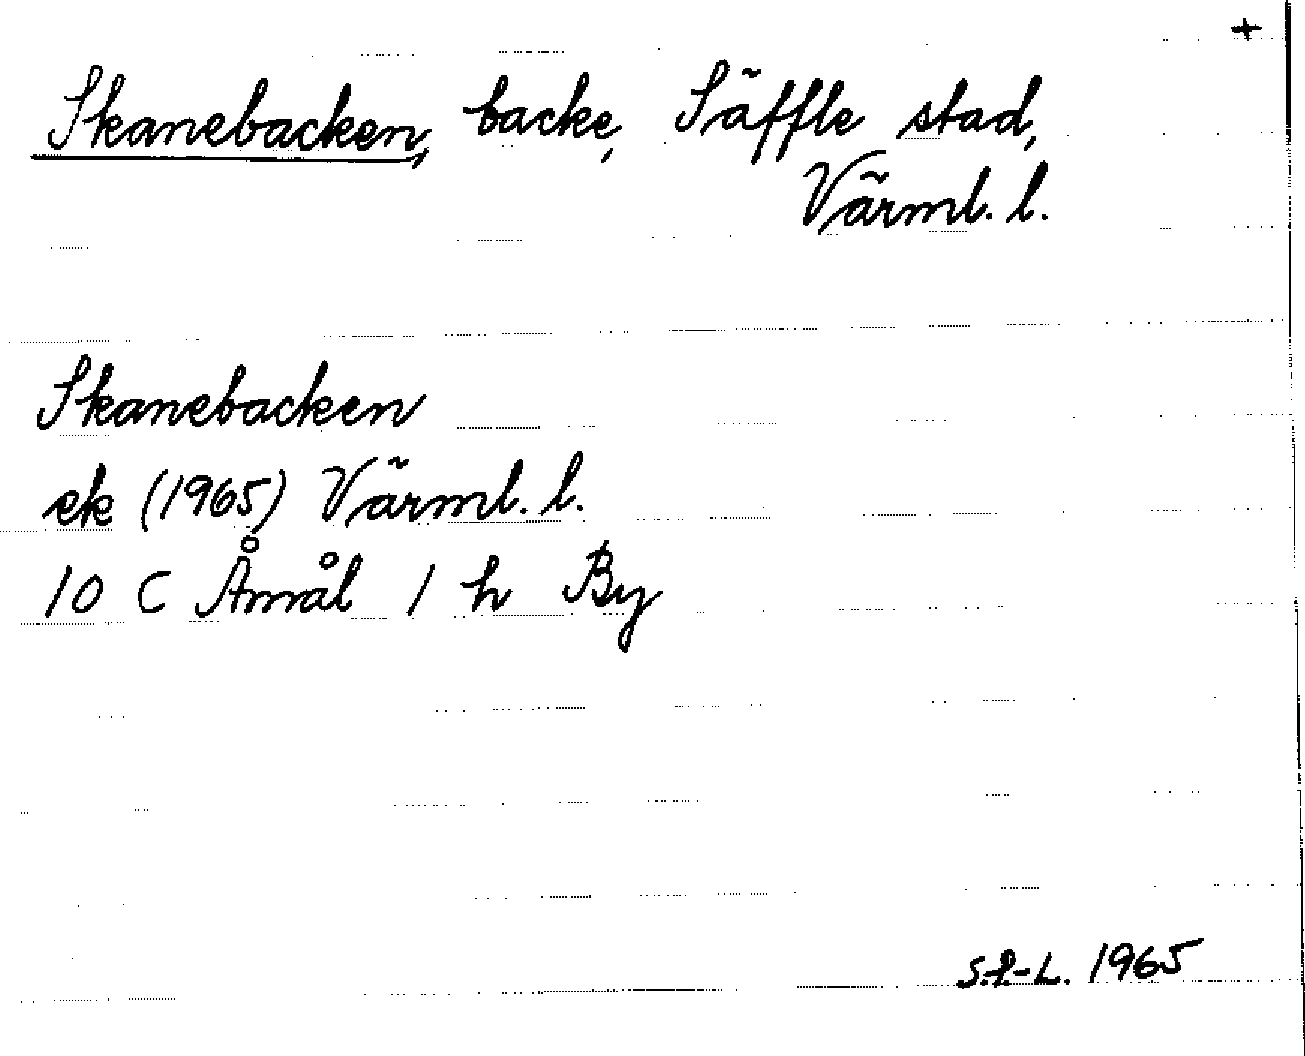 +
Skanebacken, backe, Säffle stad,
Värml. l.
Skanebacken
ek (1965) Värml. l.
10 C Åmål 1 h By
S.P.-L. 1965